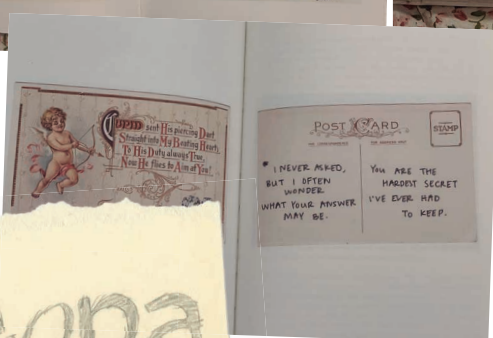 CUPID sent His piercing Dart
Straight into My Beating Heart,
To His Duty always True,
Now He flies to Aim at You!
POST CARD
STAMP
I NEVER ASKED,
BUT I OFTEN
WONDER
WHAT YOUR ANSWER
MAY BE.
YOU ARE THE
HARDEST SECRET
I'VE EVER HAD
TO KEEP.